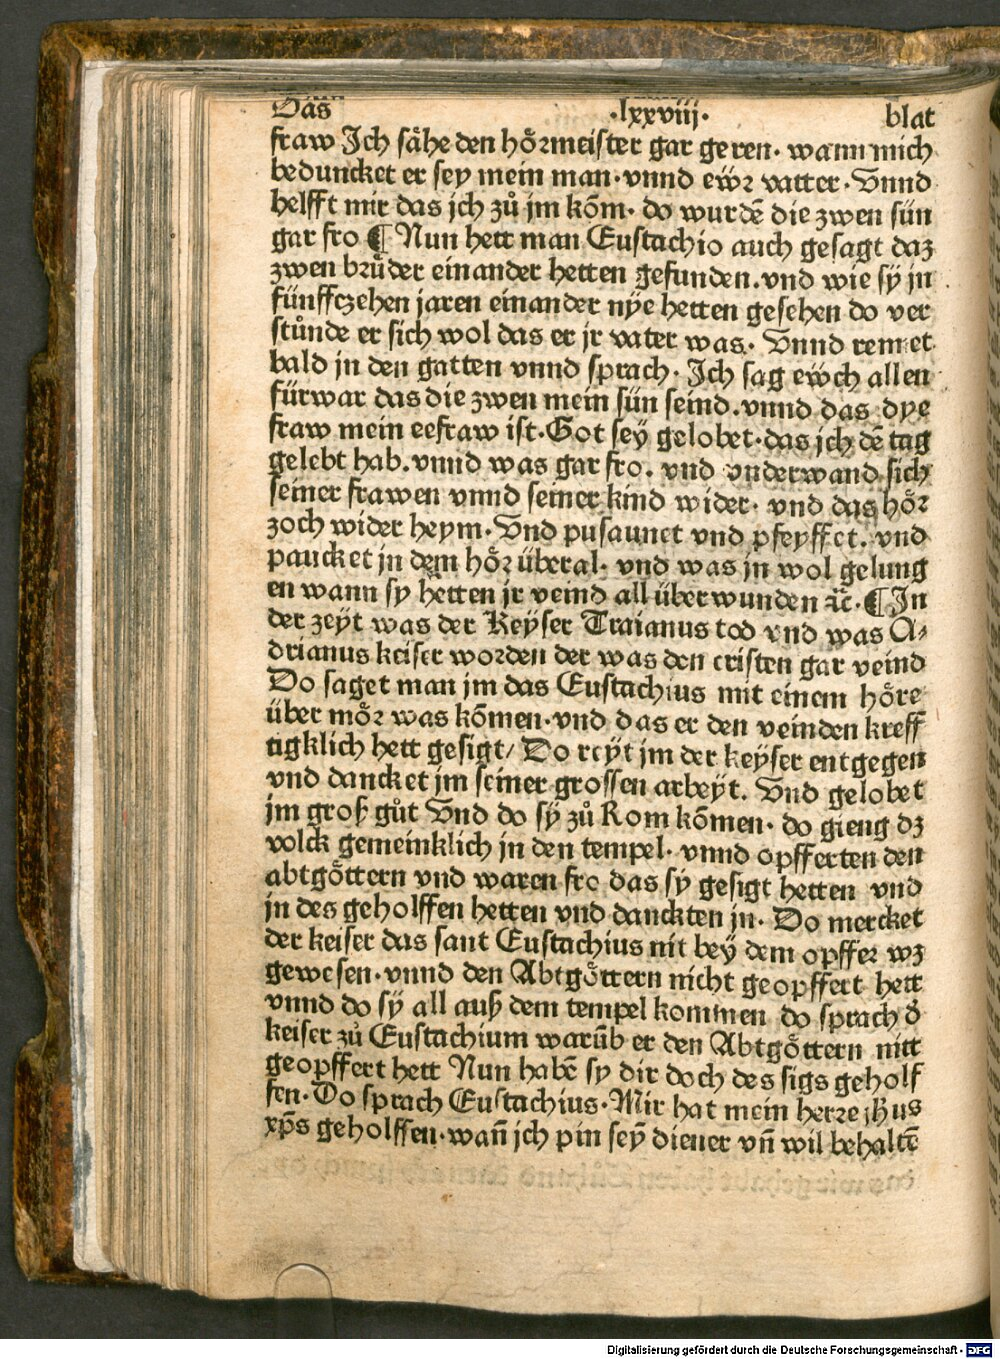 Das ·lxxviij· blat
fraw Ich sähe den hoͤrmeister gar geren· wann mich
beduncket er sey mein man·vnnd eẅr vatter·Vnnd
helfft mir das jch zů jm kōm· do wurdē die zwen sün
gar fro ¶ Nun hett man Eustachio auch gesagt daz
zwen brüder einander hetten gefunden.vnd wie sÿ jn
fünffczehen jaren einander nÿe hetten gesehen do ver
stůnde er sich wol das er jr vater was· Vnnd rennet
bald jn den gatten vnnd sprach· Ich sag eẅch allen
fürwar das die zwen mein sün seind.vnnd das dye
fraw mein eefraw ist·Got seÿ gelobet·das jch dē tag
gelebt hab.vnnd was gar fro. vnd vnderwand sich
seiner frawen vnnd seiner kind wider· vnd das hoͤr
zoch wider heym·Vnd pusaunet vnd pfeyffet. vnd
paucket jn dem hoͤr überal· vnd was jn wol gelung
en wann sy hetten jr veind all überwunden ꝛc̄·¶In
der zeÿt was der Keÿser Traianus tod vnd was A⸗
drianus keiser worden der was den cristen gar veind
Do saget man jm das Eustachius mit einem hoͤre
über moͤr was kōmen·vnd das er den veinden kreff
tigklich hett gesigt/ Do reÿt jm der keÿser entgegen
vnd dancket jm seiner grossen arbeÿt. Vnd gelobet
jm groß gůt Vnd do sÿ zů Rom kōmen· do gieng dz
volck gemeinklich jn den tempel· vnnd opfferten den
abtgoͤttern vnd waren fro das sÿ gesigt hetten vnd
jn des geholffen hetten vnd danckten jn· Do mercket
der keiser das sant Eustachius nit beÿ dem opffer wz
gewesen·vnnd den Abtgoͤttern nicht geopffert hett
vnnd do sÿ all auß dem tempel kommen do sprach d̄
keiser zů Eustachium warūb er den Abtgoͤttern nitt
geopffert hett Nun habē sy dir doch des sigs geholf
fen·Do sprach Eustachius·Mir hat mein herre jhus
xp̄s geholffen·wan̄ jch pin seÿ diener vn̄ wil behaltē
Digitalisierung gefördert durch die Deutsche Forschungsgemeinschaft - DFG